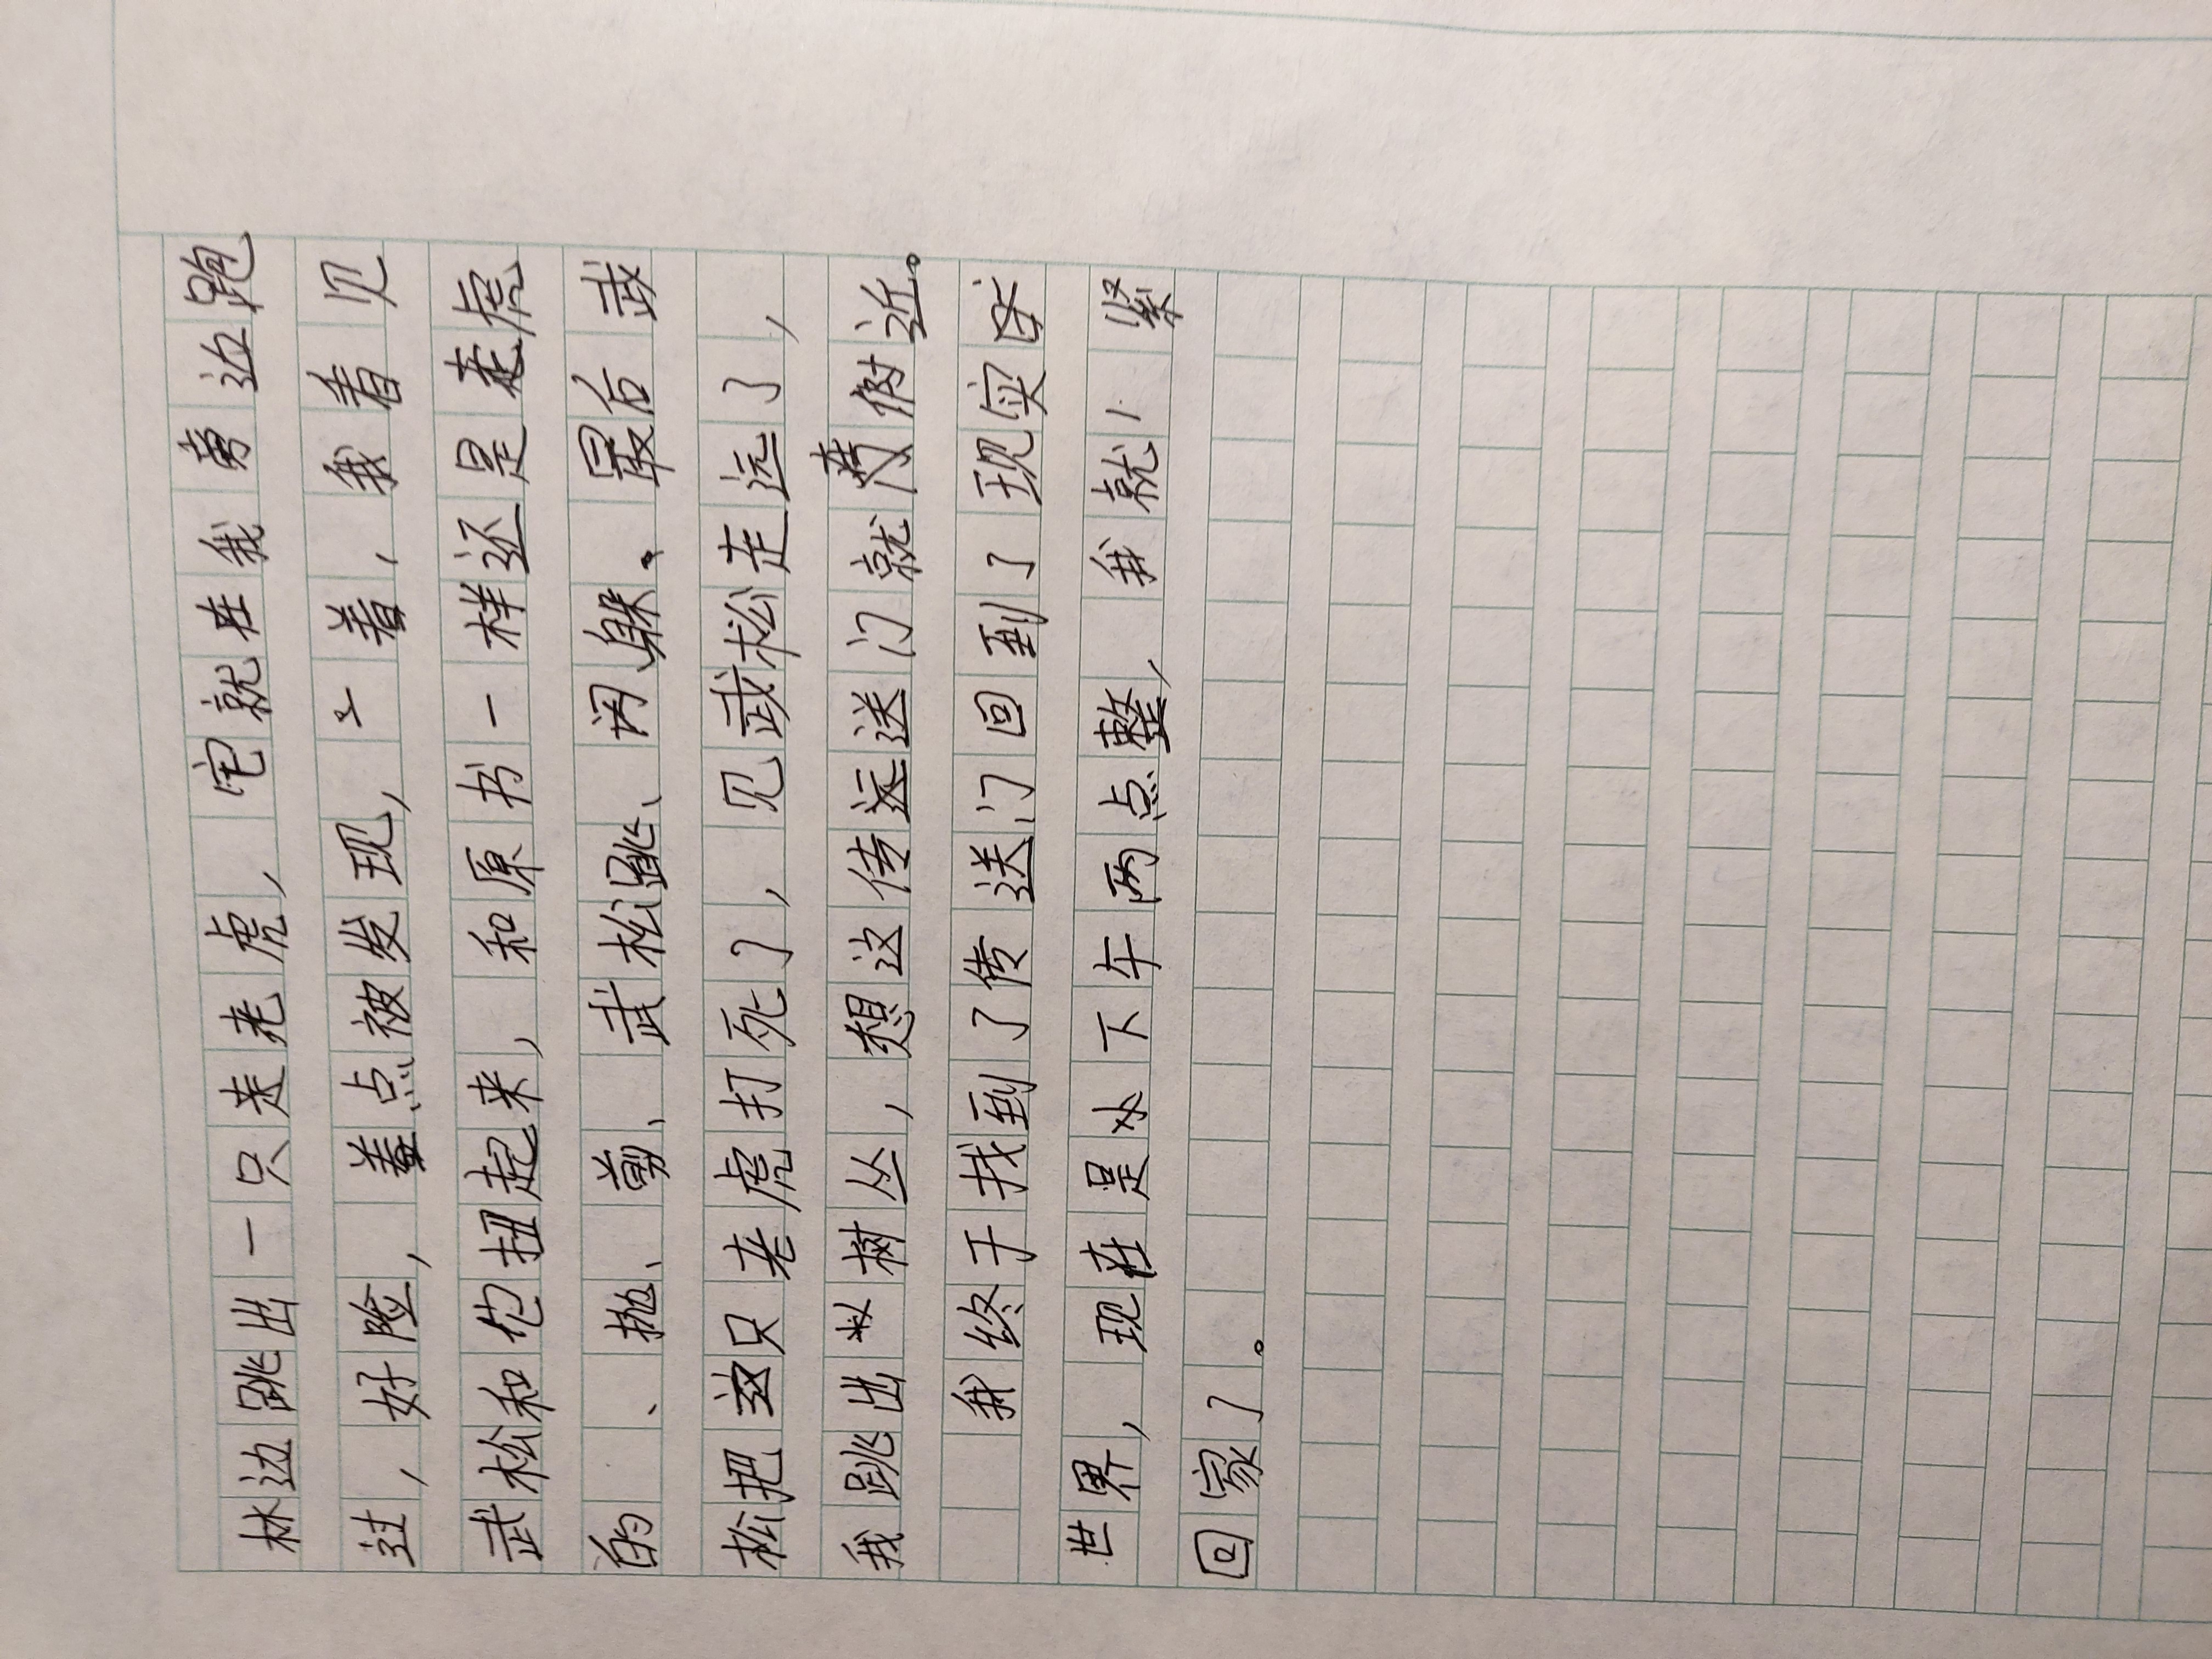 林边跳出一只老老虎，它就在我旁边跑
过，好险，差点被发现，着，我看见
武松和他扭起来，和原书一样还是老虎
的、抛、剪、武松跳、闪、躲。最后武
松把这只老虎打死了，见武松走远了，
我跳出树丛，想这传送门就附近。
我终于找到了传送门回到了现实
世界，现在是下午两点整，我就紧
回家了。